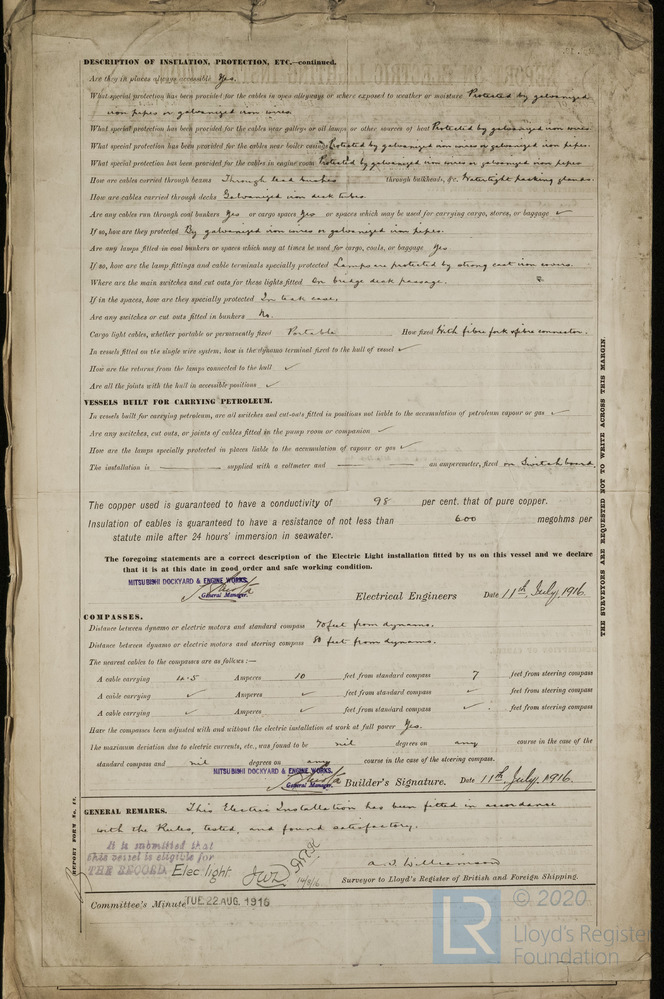 DESCRIPTION OF INSULATION, PROTECTION, ETC.—continued.
Are they in places always accessible Yes.
What special protection has been provided for the cables in open alleyways or where exposed to weather or moisture Protected by galvanized
iron pipes or galvanized iron wires.
What special protection has been provided for the cables near galleys or oil lamps or other sources of heat Protected by galvanized iron wires
What special protection has been provided for the cables near boiler casings Protected by galvanized iron wires or galvanized iron pipes.
What special protection has been provided for the cables in engine room Protected by galvanized iron wires or galvanized iron pipes
How are cables carried through beams Through lead bushes through bulkheads, &c. Watertight packing glands.
How are cables carried through decks Galvanized iron deck tubes.
Are any cables run through coal bunkers Yes or cargo spaces Yes or spaces which may be used for carrying cargo, stores, or baggage ✓
If so, how are they protected By galvanized iron wires or galvanized iron pipes.
Are any lamps fitted in coal bunkers or spaces which may at times be used for cargo, coals, or baggage Yes
If so, how are the lamp fittings and cable terminals specially protected Lamps are protected by strong cast iron covers.
Where are the main switches and cut outs for these lights fitted On bridge deck passage.
If in the spaces, how are they specially protected In teak cases.
Are any switches or cut outs fitted in bunkers No.
Cargo light cables, whether portable or permanently fixed Portable How fixed With fibre fork & fibre connector.
In vessels fitted on the single wire system, how is the dynamo terminal fixed to the hull of vessel ✓
How are the returns from the lamps connected to the hull ✓
Are all the joints with the hull in accessible positions ✓
VESSELS BUILT FOR CARRYING PETROLEUM.
In vessels built for carrying petroleum, are all switches and cut-outs fitted in positions not liable to the accumulation of petroleum vapour or gas ✓
Are any switches, cut outs, or joints of cables fitted in the pump room or companion ✓
How are the lamps specially protected in places liable to the accumulation of vapour or gas ✓
The installation is supplied with a voltmeter and an amperemeter, fixed on Switch board.
The copper used is guaranteed to have a conductivity of 98 per cent. that of pure copper.
Insulation of cables is guaranteed to have a resistance of not less than 600 megohms per
statute mile after 24 hours' immersion in seawater.
The foregoing statements are a correct description of the Electric Light installation fitted by us on this vessel and we declare
that it is at this date in good order and safe working condition.
MITSUBISHI DOCKYARD & ENGINE WORKS.
General Manager.
Electrical Engineers Date 11th July, 1916.
COMPASSES.
Distance between dynamo or electric motors and standard compass 70 feet from dynamo.
Distance between dynamo or electric motors and steering compass 80 feet from dynamo.
The nearest cables to the compasses are as follows:—
A cable carrying 4.5 Amperes 10 feet from standard compass 7 feet from steering compass
A cable carrying ✓ Amperes ✓ feet from standard compass ✓ feet from steering compass
A cable carrying ✓ Amperes ✓ feet from standard compass ✓ feet from steering compass
Have the compasses been adjusted with and without the electric installation at work at full power Yes.
The maximum deviation due to electric currents, etc., was found to be nil degrees on any course in the case of the
standard compass and nil degrees on any course in the case of the steering compass.
MITSUBISHI DOCKYARD & ENGINE WORKS.
General Manager.
Builder's Signature. Date 11th July, 1916.
GENERAL REMARKS. This Electric Installation has been fitted in accordance
with the Rules, tested, and found satisfactory.
It is submitted that
this vessel is eligible for
THE RECORD Elec light JWD 14/9/16
A. J. Williamson
Surveyor to Lloyd's Register of British and Foreign Shipping.
Committee's Minute TUE 22 AUG. 1916
REPORT FORM No. 13.
THE SURVEYORS ARE REQUESTED NOT TO WRITE ACROSS THIS MARGIN
LR
© 2020
Lloyd's Register
Foundation